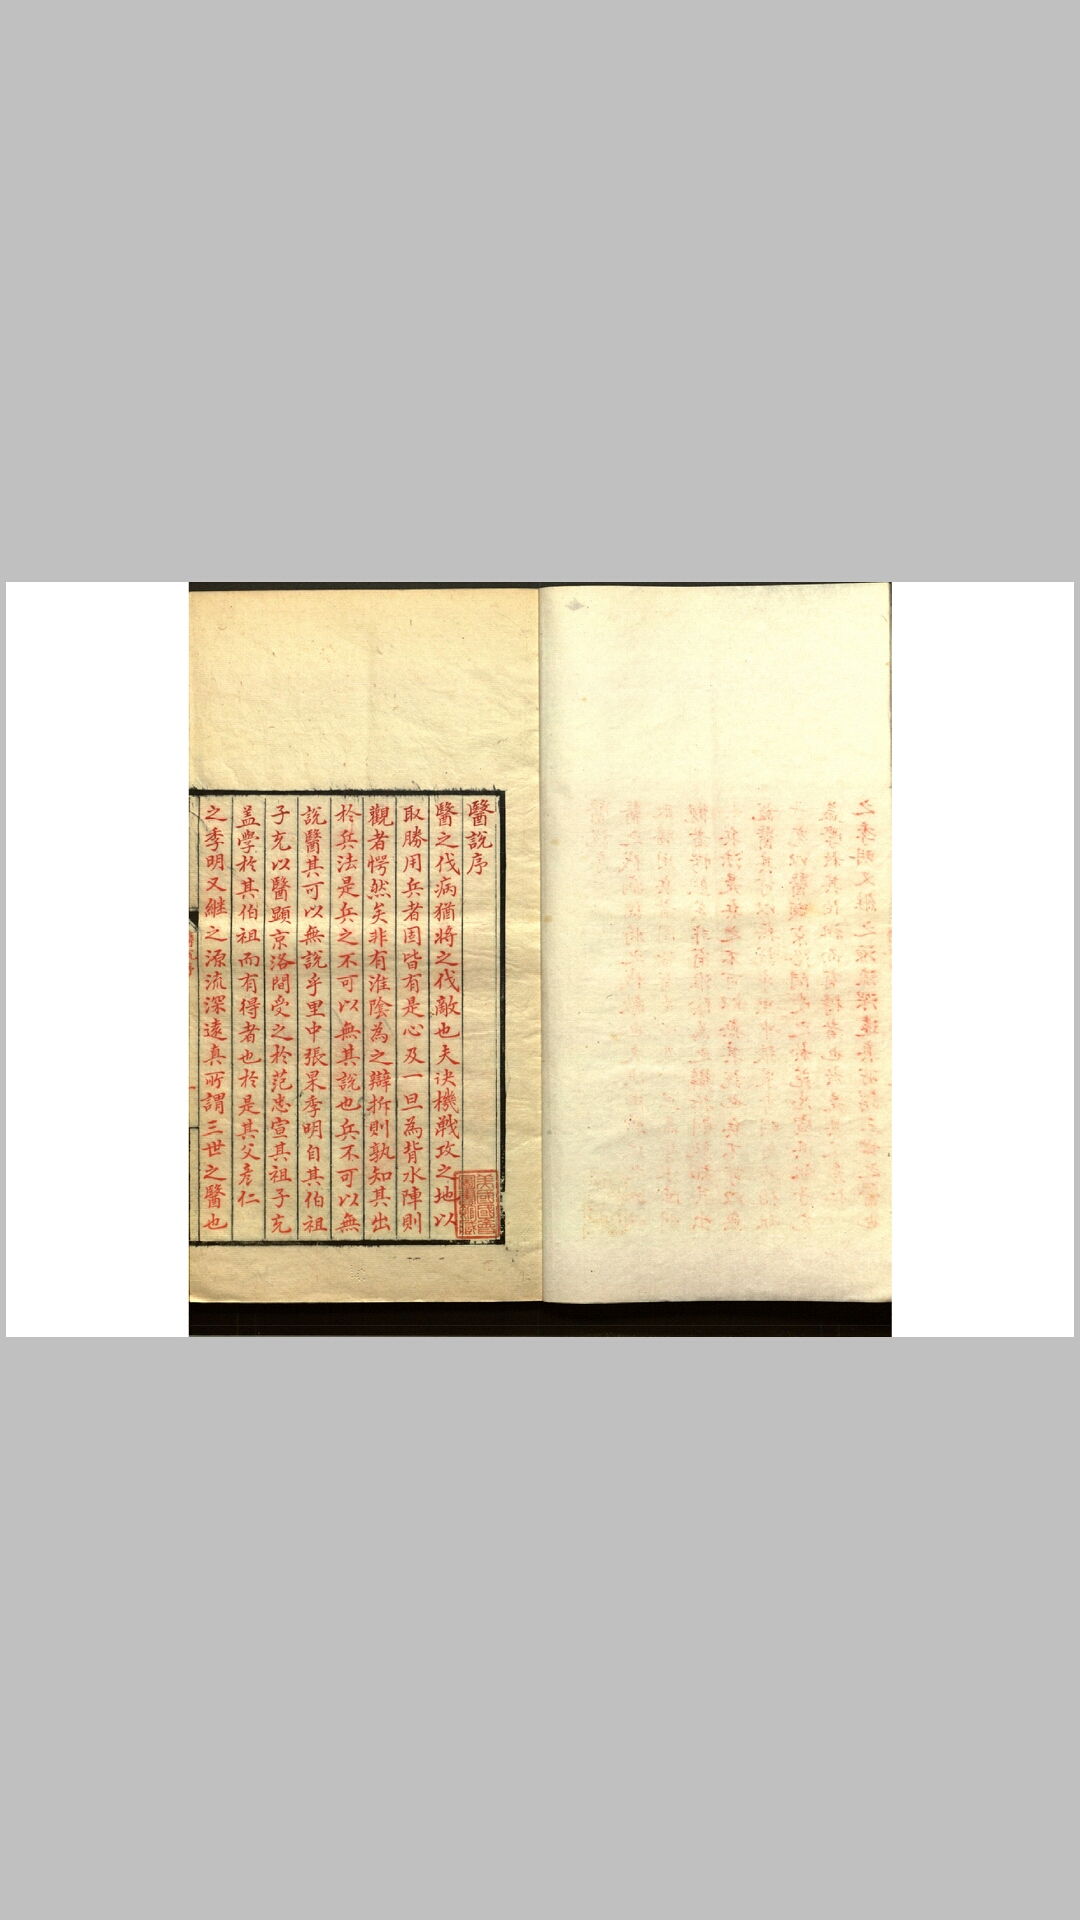 醫說序
醫之伐病猶將之伐敵也夫决機戰攻之地以
取勝用兵者固皆有是心及一旦為背水陣則
觀者愕然矣非有淮陰為之辯拆則孰知其出
於兵法是兵之不可以無其說也兵不可以無
說醫其可以無說乎里中張杲季明自其伯祖
子充以醫顯京洛間受之於范忠宣其祖子充
盖學於其伯祖而有得者也於是其父彥仁
之季明又継之源流深遠真所謂三世之醫也